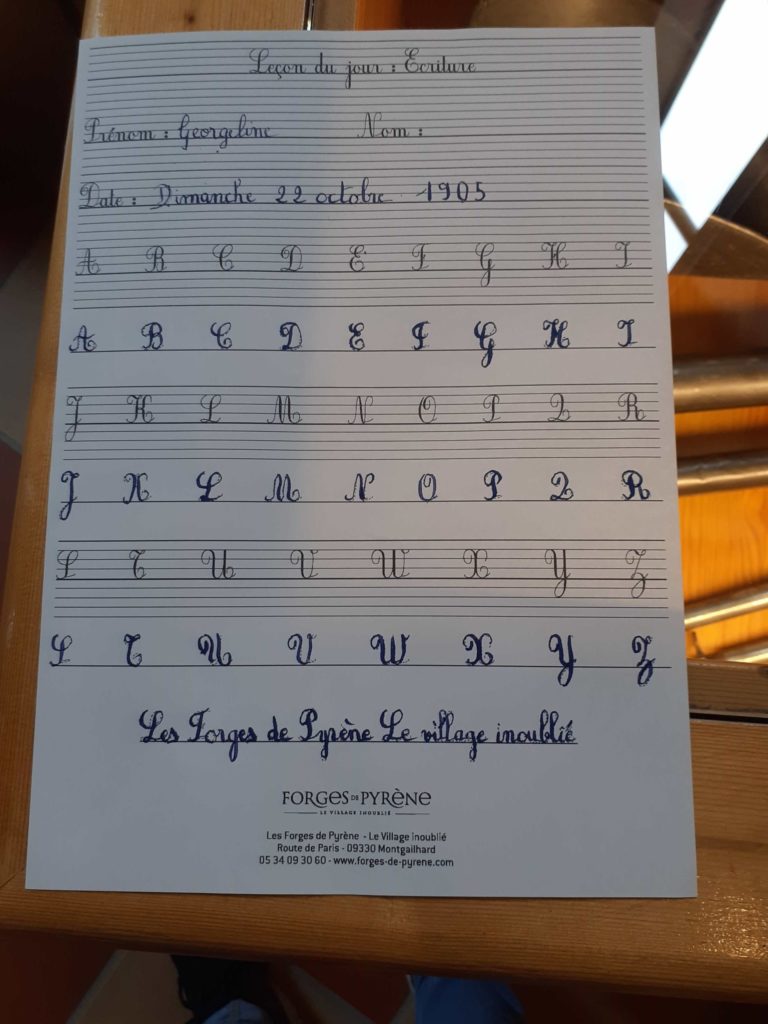 Leçon du jour : Ecriture
Prénom : Georgeline Nom :
Date : Dimanche 22 octobre 1905
A B C D E F G H I
A B C D E F G H I
J K L M N O P Q R
J K L M N O P Q R
S T U V W X Y Z
S T U V W X Y Z
Les Forges de Pyrène Le village inoublié
FORGES DE PYRÈNE
LE VILLAGE INOUBLIÉ
Les Forges de Pyrène - Le Village inoublié
Route de Paris - 09330 Montgailhard
05 34 09 30 60 - www.forges-de-pyrene.com